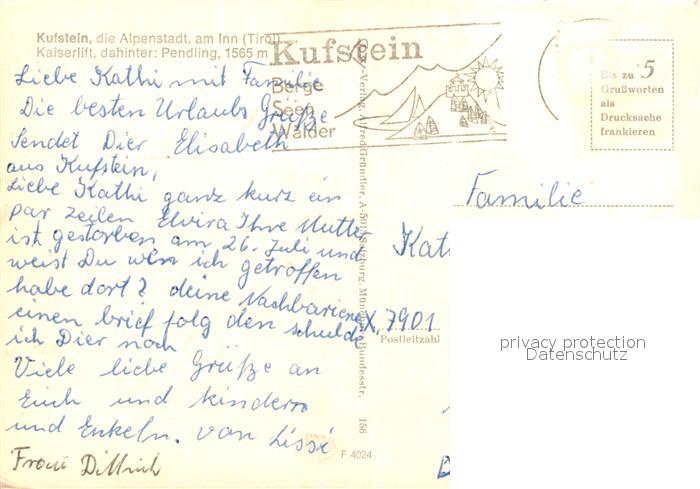 Kufstein, die Alpenstadt, am Inn (Tirol)
Kaiserlift, dahinter: Pendling, 1565 m
Kufstein
Berge
Seen
Wälder
Bis zu 5
Grußworten
als
Drucksache
frankieren
Liebe Kathi mit Familie
Die besten Urlaubs Grüße
sendet Dier Elisabeth
aus Kufstein,
Liebe Kathi ganz kurz ein
par zeilen Elvira Ihre Mutter
ist gestorben am 26. Juli und
weist Du wen ich getroffen
habe dort? deine Nachbariene
einen brief folg den schulde
ich Dier noch
Viele liebe Grüße an
Euch und kindern
und Enkeln. von Lissi
Frau Dittrich
Familie
Kath
X, 7901
Postleitzahl
Verlag Alfred Gründler, A-5013 Salzburg, Münchner Bundesstr. 156
F 4024
privacy protection
Datenschutz